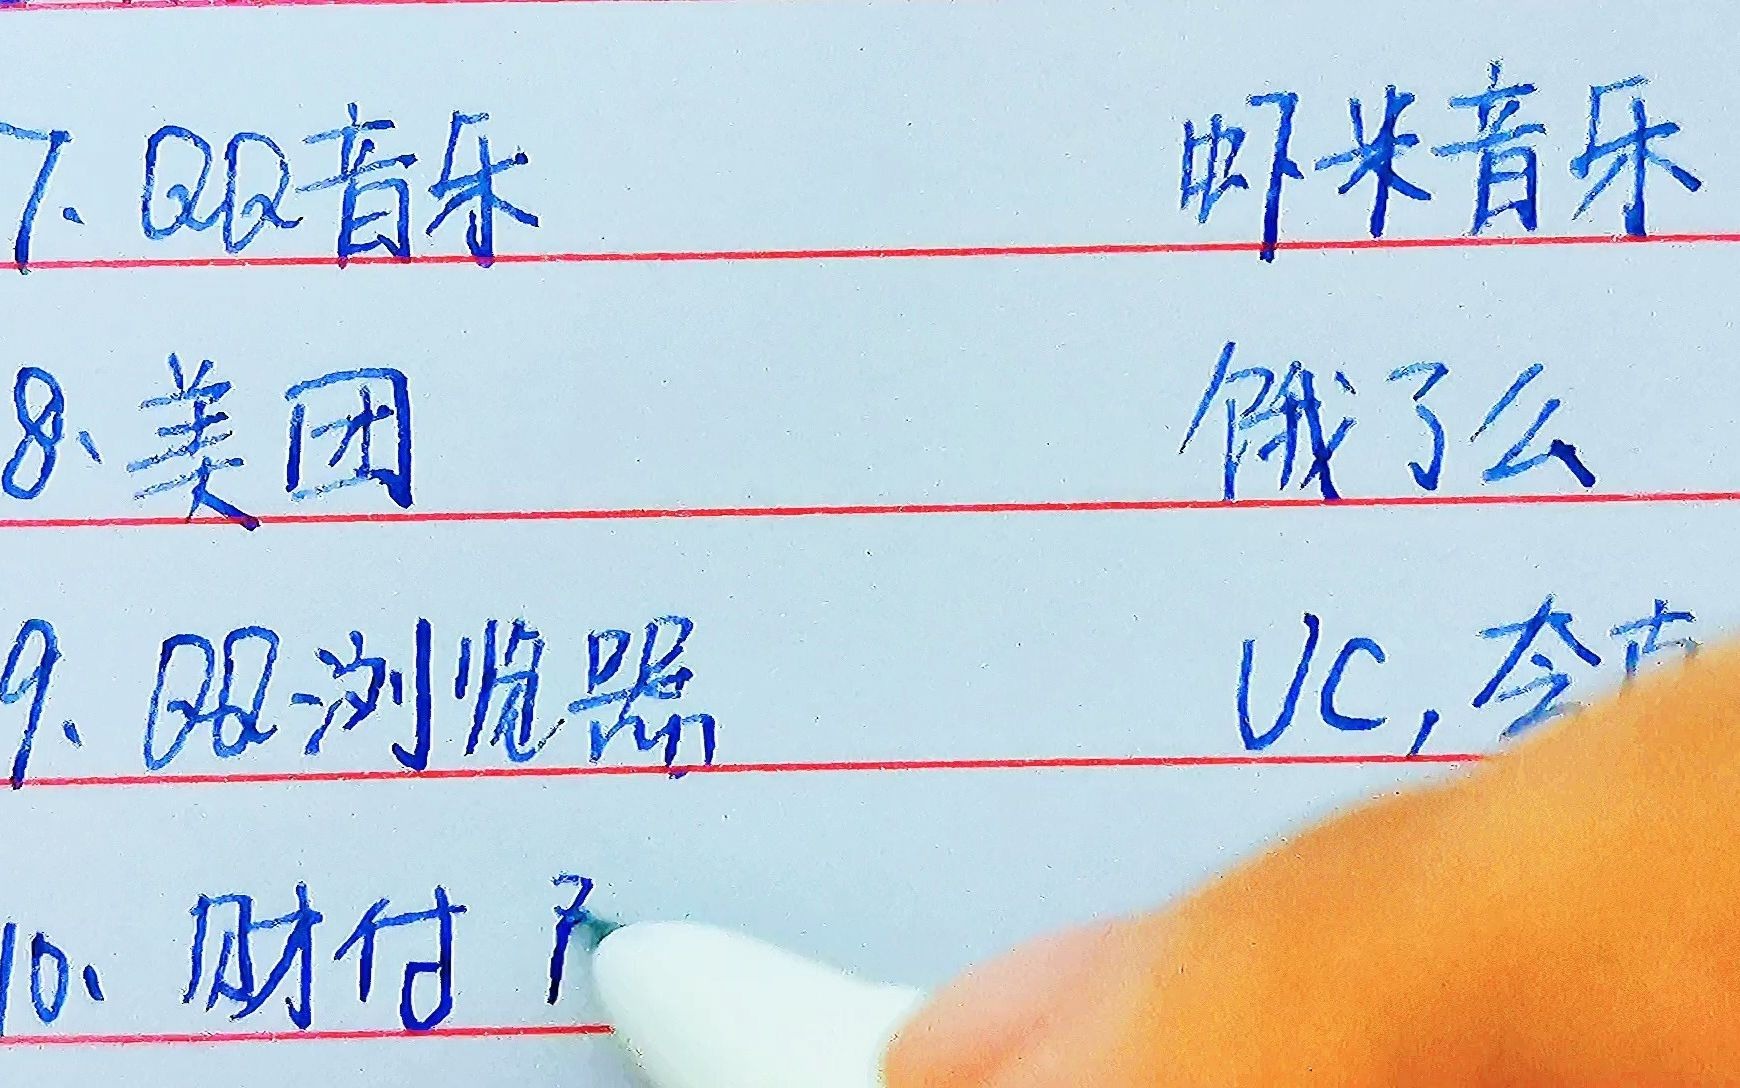 7、QQ音乐 虾米音乐
8、美团 饿了么
9、QQ浏览器 UC,夸
10、财付